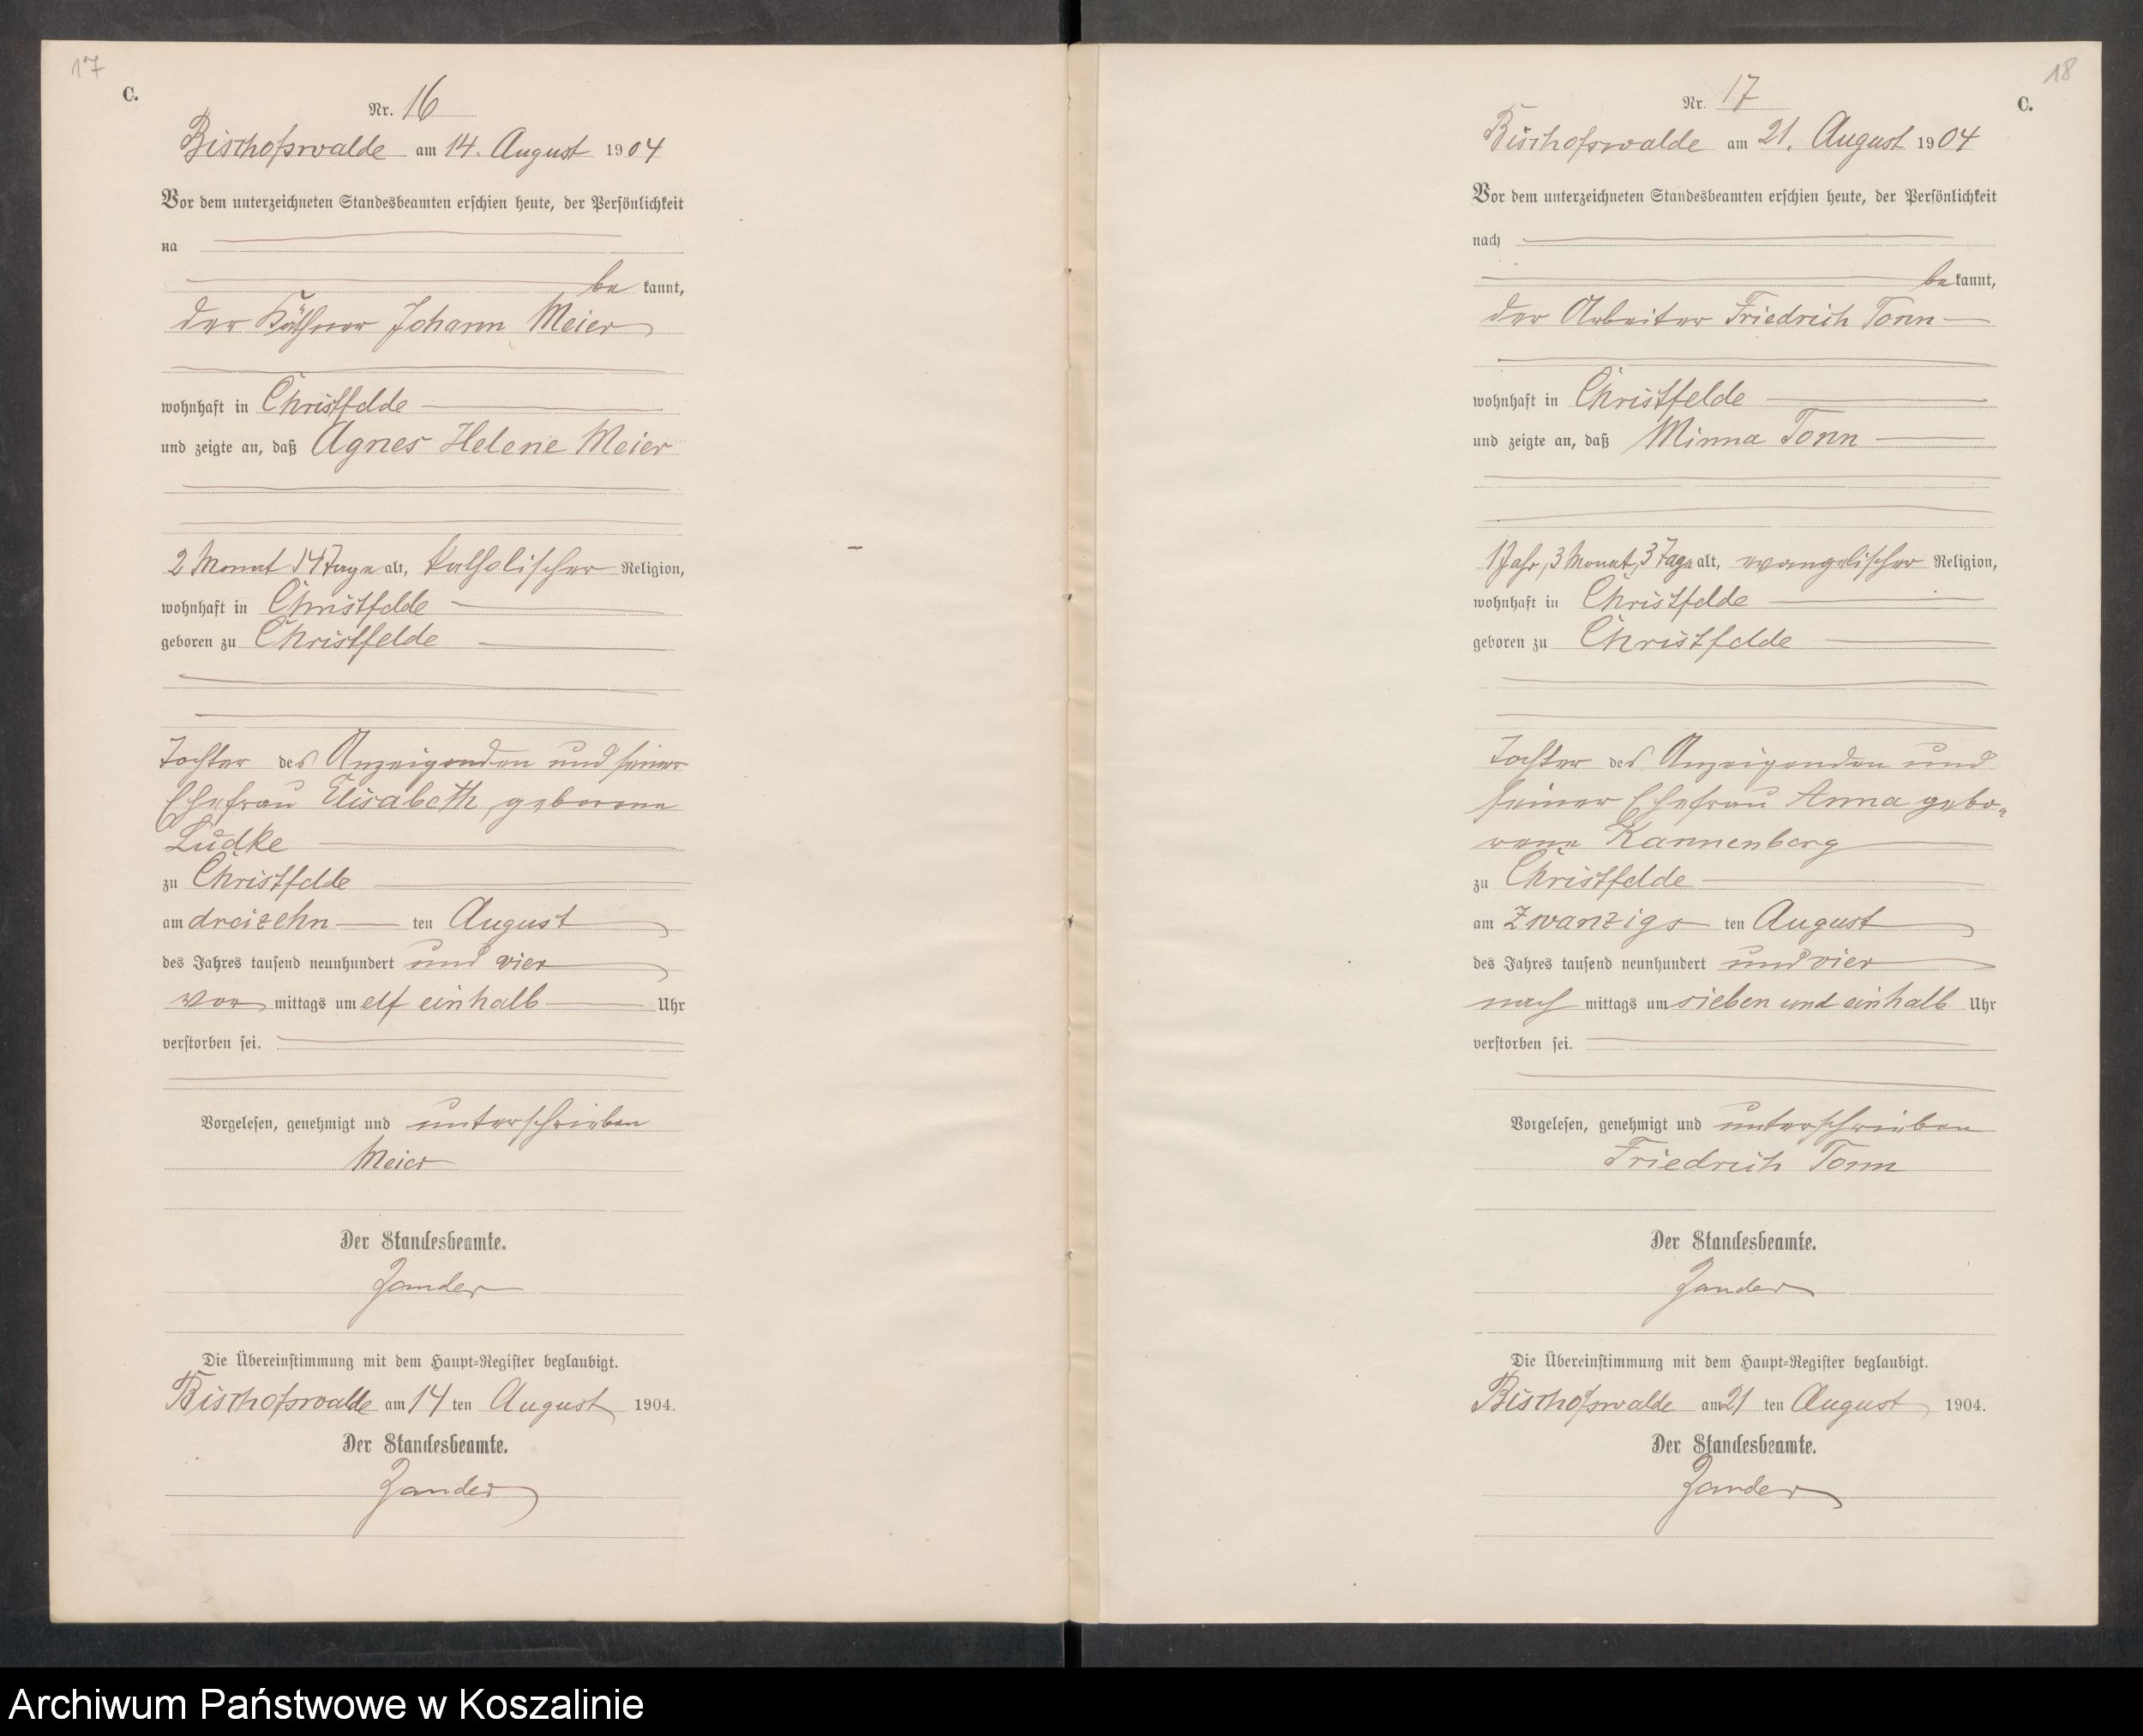 17
C.
Nr. 16
Bischofswalde am 14. August 1904
Vor dem unterzeichneten Standesbeamten erschien heute, der Persönlichkeit
na
be kannt,
der Käthner Johann Meier
wohnhaft in Christfelde
und zeigte an, daß Agnes Helene Meier
2 Monat 14 Tage alt, katholischer Religion,
wohnhaft in Christfelde
geboren zu Christfelde
Tochter des Anzeigenden und seiner
Ehefrau Elisabeth, geborene
Lüdke
zu Christfelde
am dreizehn ten August
des Jahres tausend neunhundert und vier
vor mittags um elf einhalb Uhr
verstorben sei.
Vorgelesen, genehmigt und unterschrieben
Meier
Der Standesbeamte.
Zander
Die Übereinstimmung mit dem Haupt=Register beglaubigt.
Bischofswalde am 14 ten August 1904.
Der Standesbeamte.
Zander
18
C.
Nr. 17
Bischofswalde am 21. August 1904
Vor dem unterzeichneten Standesbeamten erschien heute, der Persönlichkeit
nach
be kannt,
der Arbeiter Friedrich Tonn
wohnhaft in Christfelde
und zeigte an, daß Minna Tonn
1 Jahr, 3 Monat, 3 Tage alt, evangelischer Religion,
wohnhaft in Christfelde
geboren zu Christfelde
Tochter des Anzeigenden und
seiner Ehefrau Anna gebo-
rene Kannenberg
zu Christfelde
am Zwanzigs ten August
des Jahres tausend neunhundert und vier
nach mittags um sieben und einhalb Uhr
verstorben sei.
Vorgelesen, genehmigt und unterschrieben
Friedrich Tonn
Der Standesbeamte.
Zander
Die Übereinstimmung mit dem Haupt=Register beglaubigt.
Bischofswalde am 21 ten August 1904.
Der Standesbeamte.
Zander
Archiwum Państwowe w Koszalinie